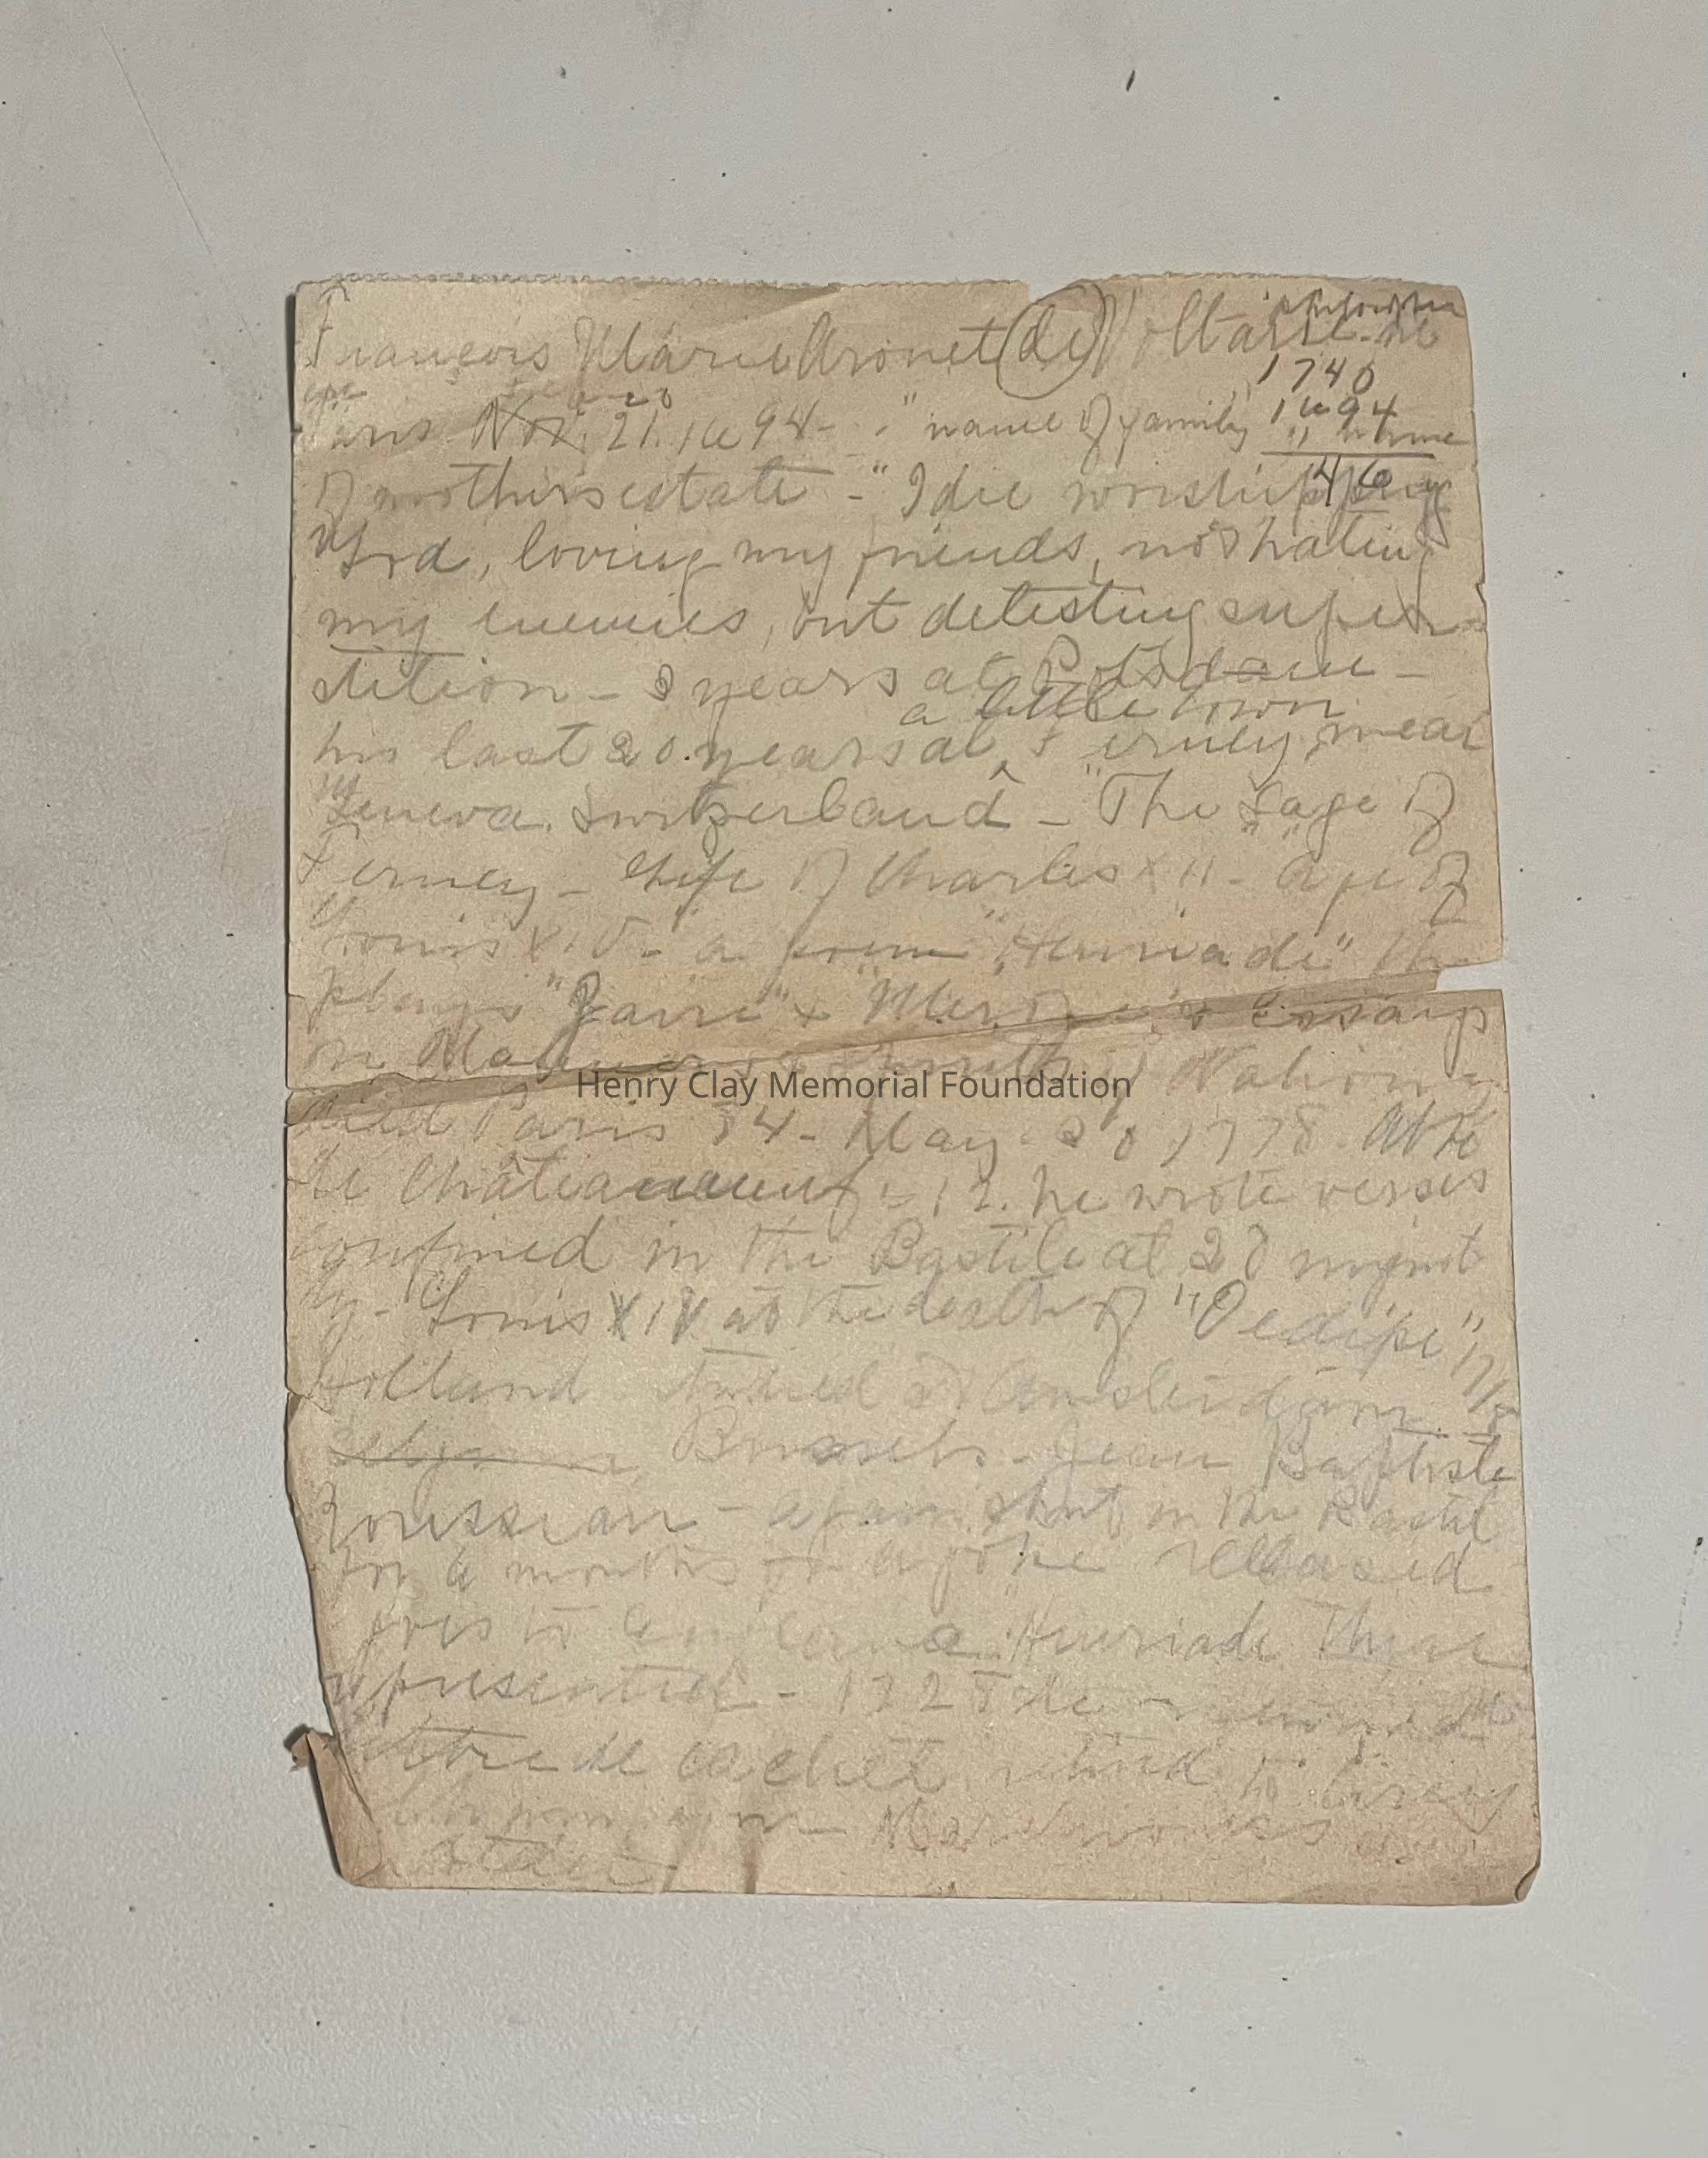 philosopher
François Marie Arouet (de) Voltaire - ne
1740
Paris Nov. 21. 1694 - " name of family 1694
" name
of mothers estate - " I die worshipping 46
God, loving my friends, not hating
my enemies, but detesting super-
stition - 3 years at Potsdam -
a little town
his last 20 years at ^ Ferney, near
Geneva. Switzerland - "The Sage of
Ferney - Life of Charles XII - Age of
Louis XIV - a poem "Henriade" the
plays "Zaire" + "Merope" & Essays
on Manners & of Nation -
died Paris 84 - May 30 1778. Abbé
de Châteauneuf - 12. he wrote verses
confined in the Bastile at 20 unjust
ly - Louis XIV at the death of "Oedipe" 17
Holland - studied at Amsterdam
Brussels - Jean Baptiste
Rousseau - again shut in the Bastile
for 6 months for a joke released
goes to England Henriade There
represented - 1728 de
lettre de cachet retired to Cirey
Marchioness